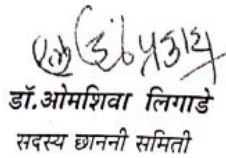 डॉ.ओमशिवा लिगाडे
सदस्य छाननी समिती